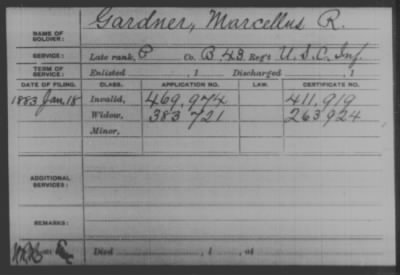 Gardner, Marcellus R.
NAME OF SOLDIER:
SERVICE: Late rank, P Co. B, 43 Reg't U.S.C. Inf.
TERM OF SERVICE: Enlisted , 1 Discharged , 1
DATE OF FILING. CLASS. APPLICATION NO. LAW. CERTIFICATE NO.
1883 Jan. 18 Invalid, 469,974 411,919
Widow, 383 721 263924
Minor,
ADDITIONAL SERVICES:
REMARKS:
Died , 1 , at